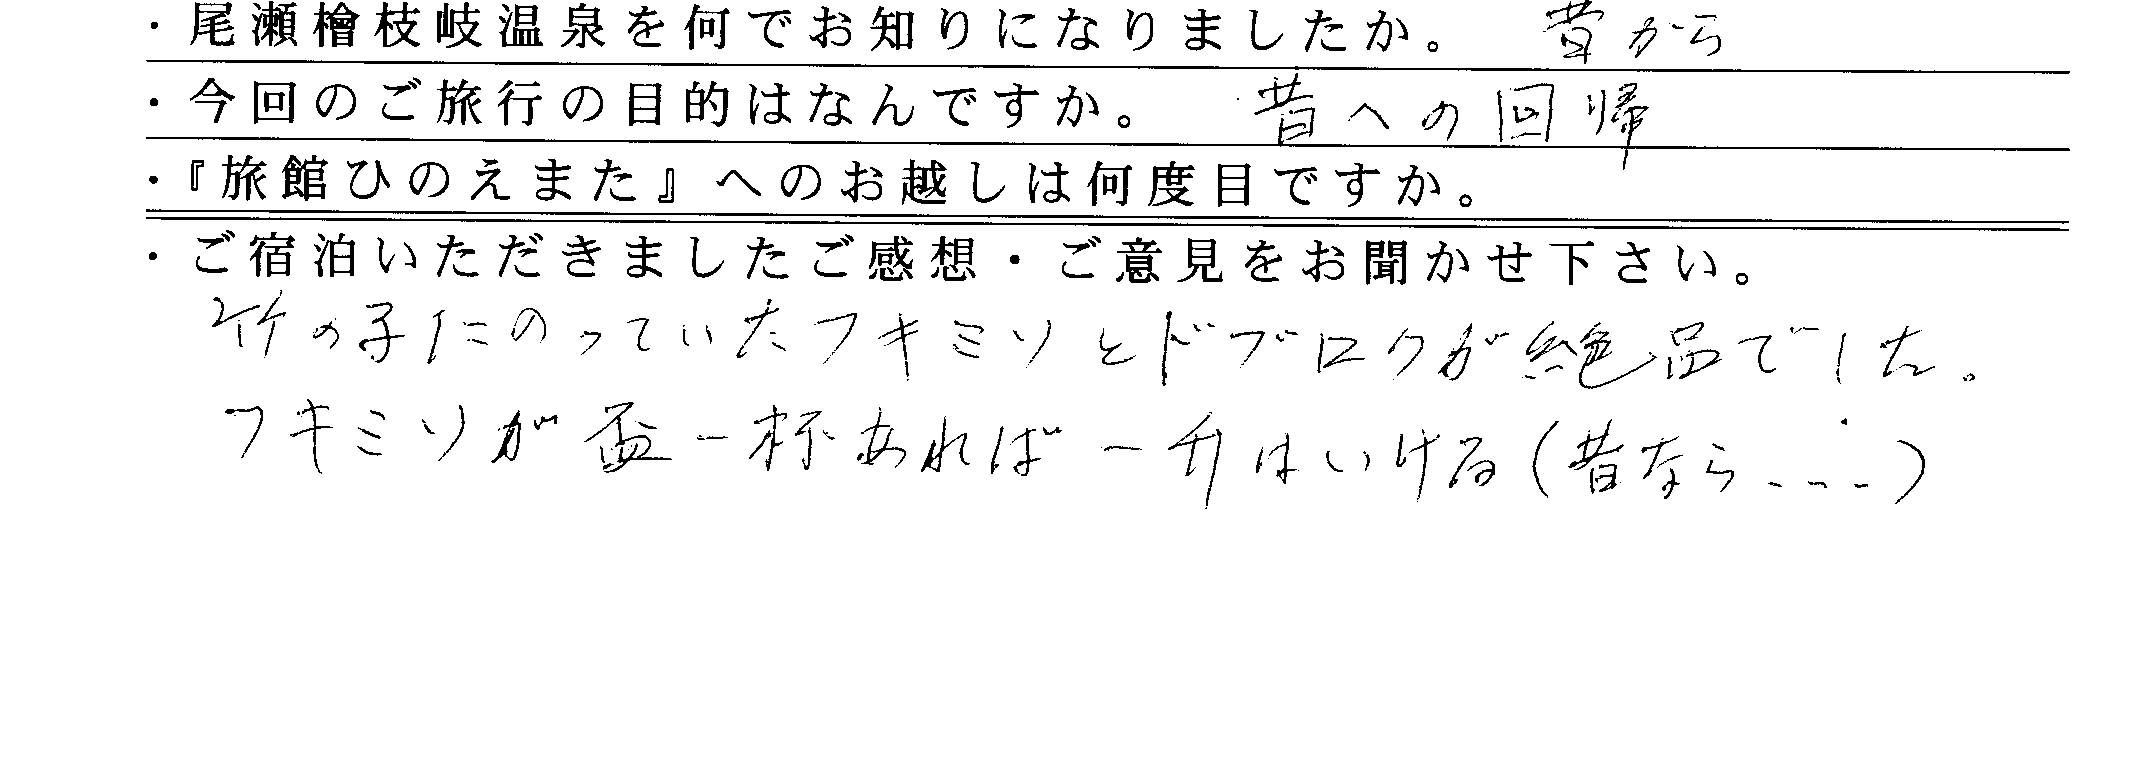 ・尾瀬檜枝岐温泉を何でお知りになりましたか。 昔から
・今回のご旅行の目的はなんですか。 昔への回帰
・『旅館ひのえまた』へのお越しは何度目ですか。
・ご宿泊いただきましたご感想・ご意見をお聞かせ下さい。
竹の子にのっていたフキミソとドブロクが絶品でした。
フキミソが盃一杯あれば一升はいける(昔なら...)